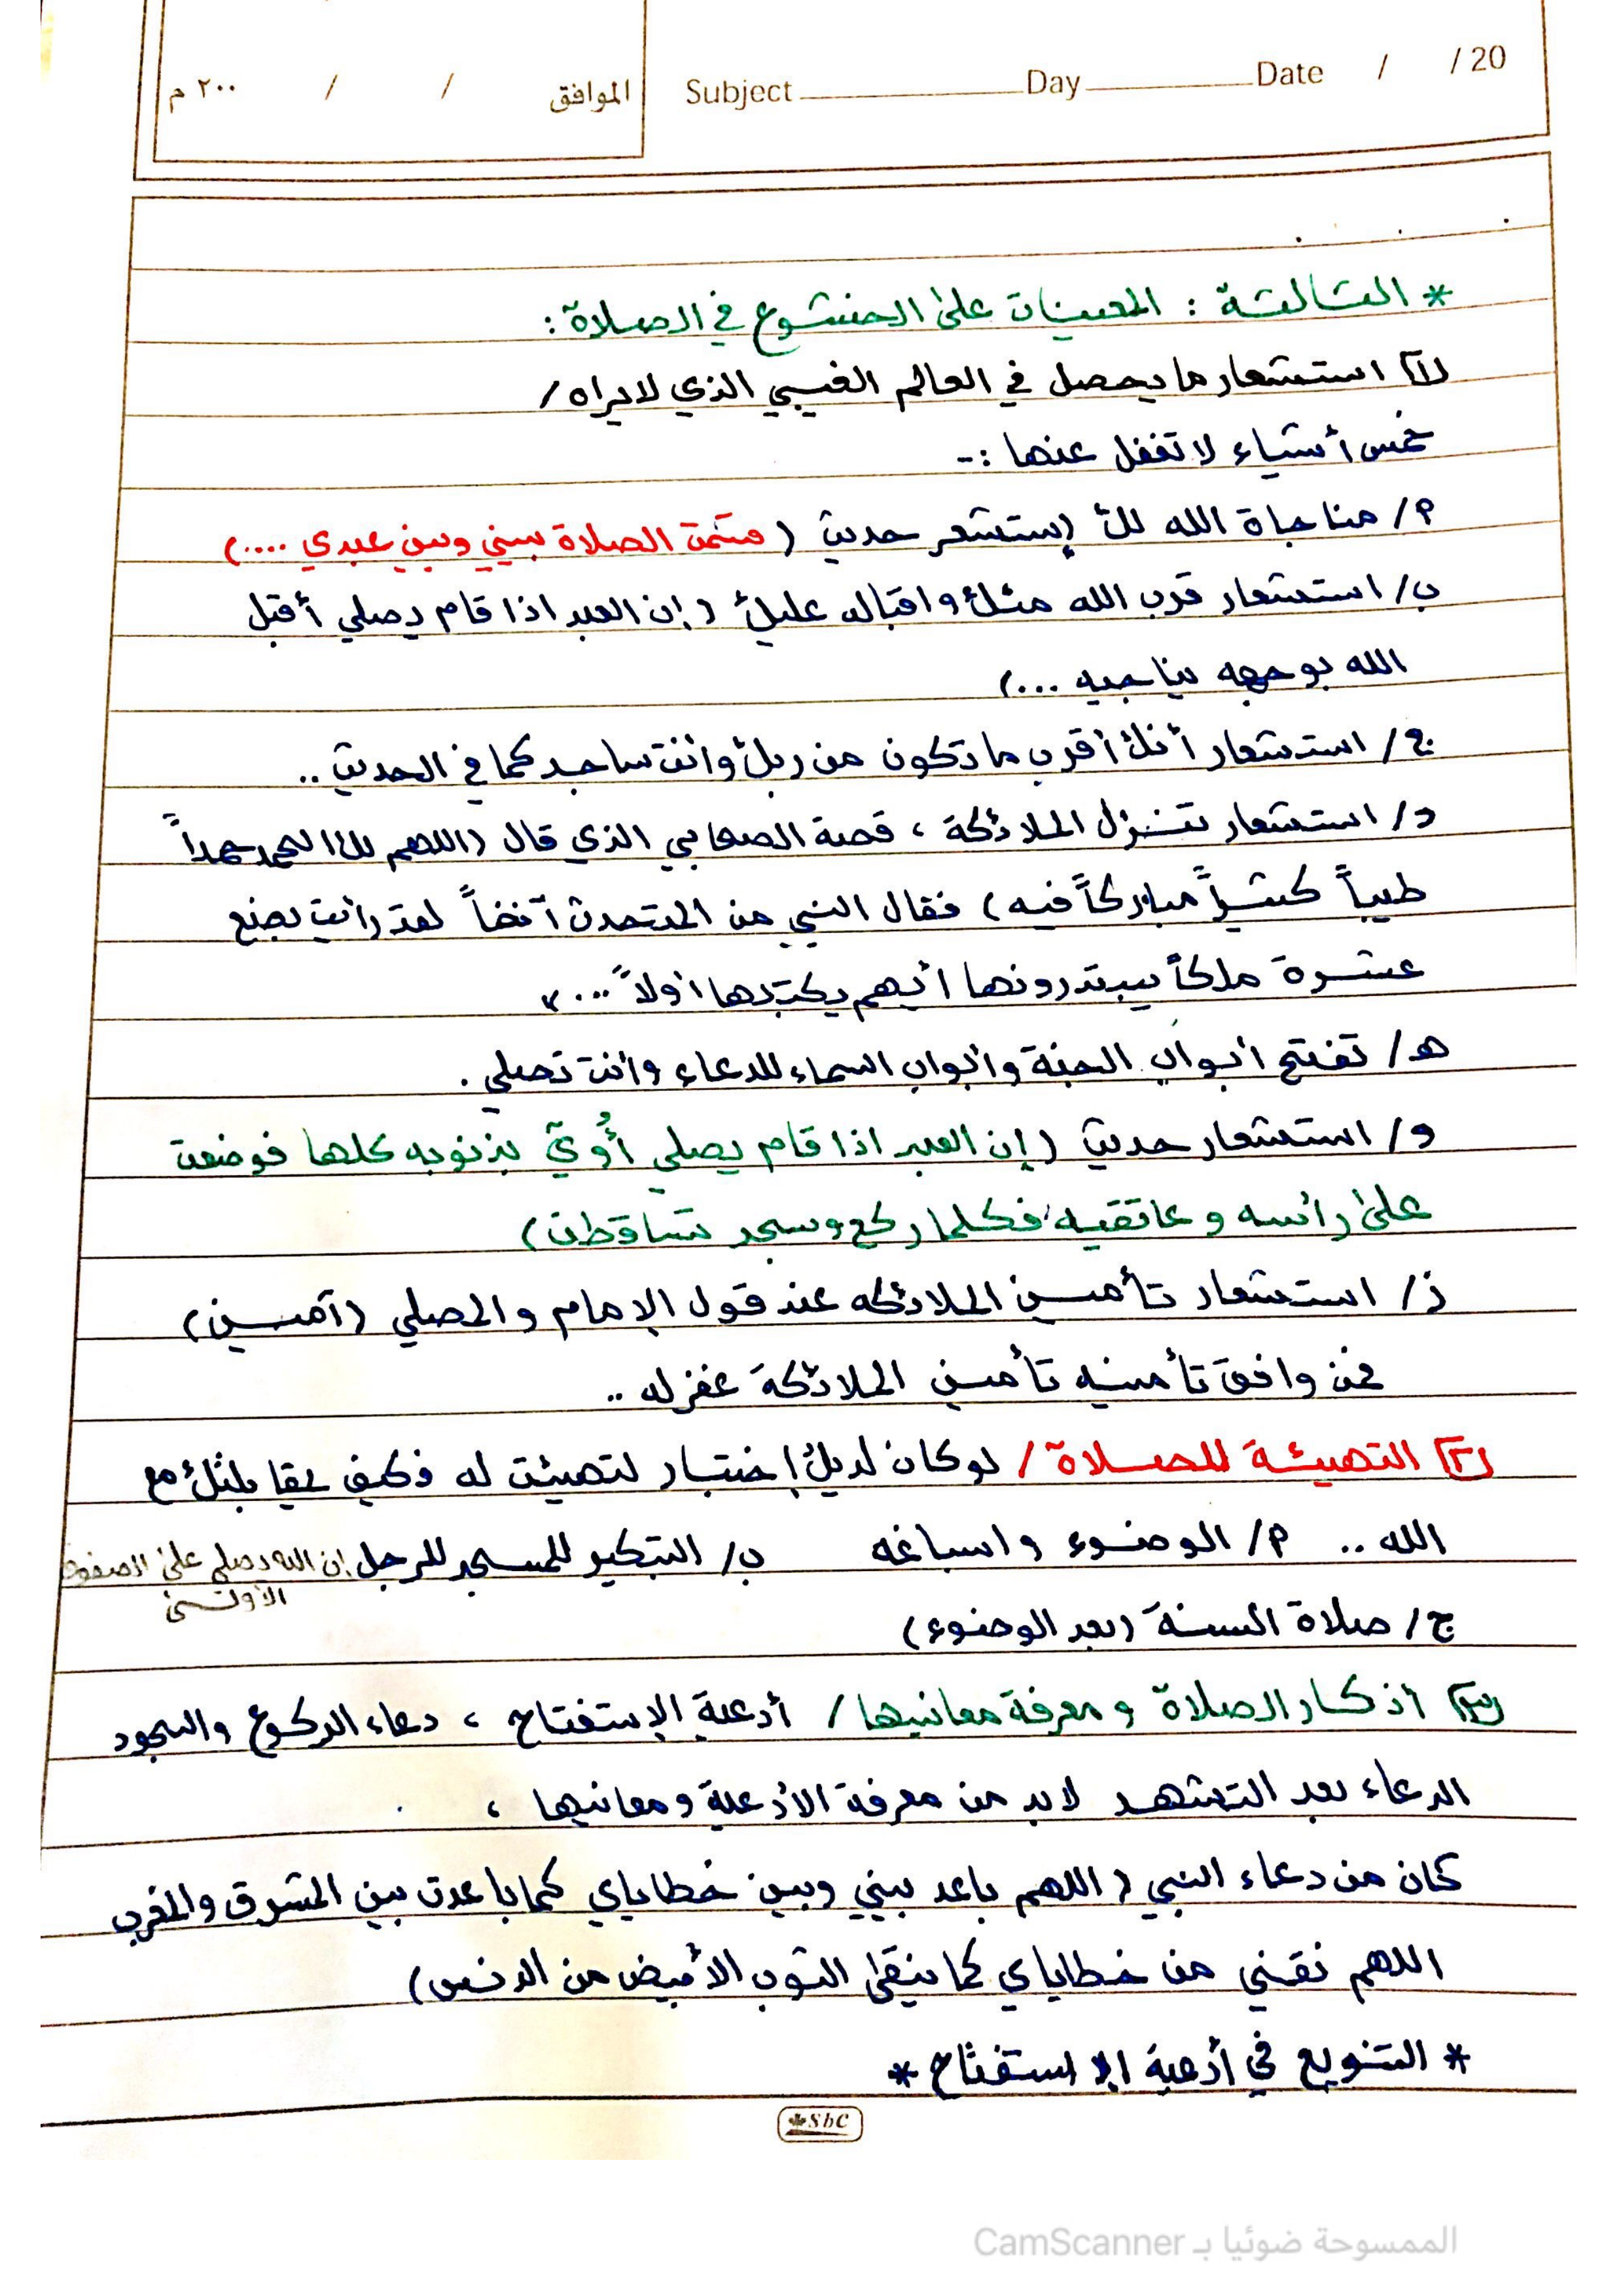 Subject Day Date / / 20
الموافق / / ٢٠٠ م
* الثالثة : المعينات على الخشوع في الصلاة :
١) استشعار ما يحصل في العالم الغيبي الذي لا يراه /
خمس أشياء لا تغفل عنها :-
أ/ مناجاة الله لك إستشعر حديث ( قسمت الصلاة بيني وبين عبدي ....)
ب/ استشعار قرب الله منك و اقباله عليك ( إن العبد اذا قام يصلي أقبل
الله بوجهه يناجيه ...)
ج/ استشعار أنك أقرب ما تكون من ربك وأنت ساجد كما في الحديث ..
د/ استشعار تنزل الملائكة ، قصة الصحابي الذي قال (اللهم لك الحمد حمداً
طيباً كثيراً مباركاً فيه ) فقال النبي من المتحدث آنفاً لقد رأيت بضع
عشرة ملكاً يبتدرونها أيهم يكتبها أولاً ....
هـ/ تفتح أبواب الجنة وأبواب السماء للدعاء وأنت تصلي .
و/ استشعار حديث ( إن العبد اذا قام يصلي أُوتي بذنوبه كلها فوضعت
على رأسه و عاتقيه فكلما ركع وسجد تساقطت )
ز/ استشعار تأمين الملائكه عند قول الإمام و المصلي ( آمين )
فمن وافق تأمينه تأمين الملائكة غفر له ..
٢) التهيئة للصلاة / لو كان لديك إختبار لتهيئت له فكيف بلقائك مع
الله .. أ/ الوضوء و اسباغه ب/ التبكير للمسجد للرجل إن الله يصلي على الصفوف
الأولى
ج/ صلاة السنة (بعد الوضوء)
٣) أذكار الصلاة و معرفة معانيها / أدعية الإستفتاح ، دعاء الركوع والسجود
الدعاء بعد التشهد لابد من معرفة الأدعية و معانيها ،
كان من دعاء النبي ( اللهم باعد بيني وبين خطاياي كما باعدت بين المشرق والمغرب
اللهم نقني من خطاياي كما ينقى الثوب الأبيض من الدنس )
* التنويع في أدعية الاستفتاح *
SbC
الممسوحة ضوئيا بـ CamScanner